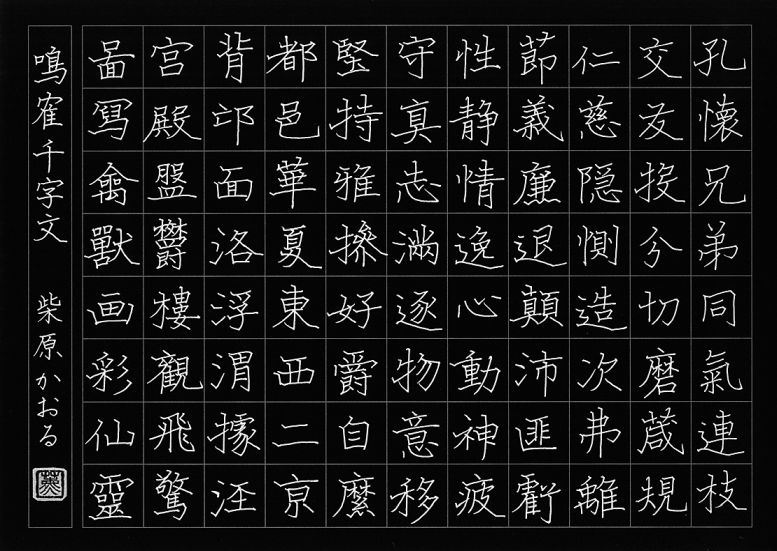 孔懐兄弟同氣連枝
交友投分切磨葴規
仁慈隠惻造次弗離
莭義廉退顛沛匪虧
性静情逸心動神疲
守真志満逐物意移
堅持雅操好爵自縻
都邑華夏東西二亰
背邙面洛浮渭據汪
宮殿盤欝樓觀飛驚
啚寫禽獸画彩仙靈
鳴雀千字文 柴原かおる